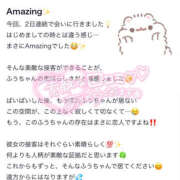 Amazing✨
今回、2日連続で会いに行きました💡
はじめましての時とは違う感じ…
まさにAmazingでした😆✨
そんな素敵な接客ができることが、
ばいばいした後、もっとふうちゃんが居ない
この空間が、このっと寂しくなるので…💯
もう、このふうちゃんの存在はまさに恋人ですよね‼️
彼女の接客はそれぐらい素晴らしく💯
何よりも人柄が素敵な証拠だと思います🍀
これからもずっと、そんなふうちゃんで居てください😊
遠方からにはなりますが💦